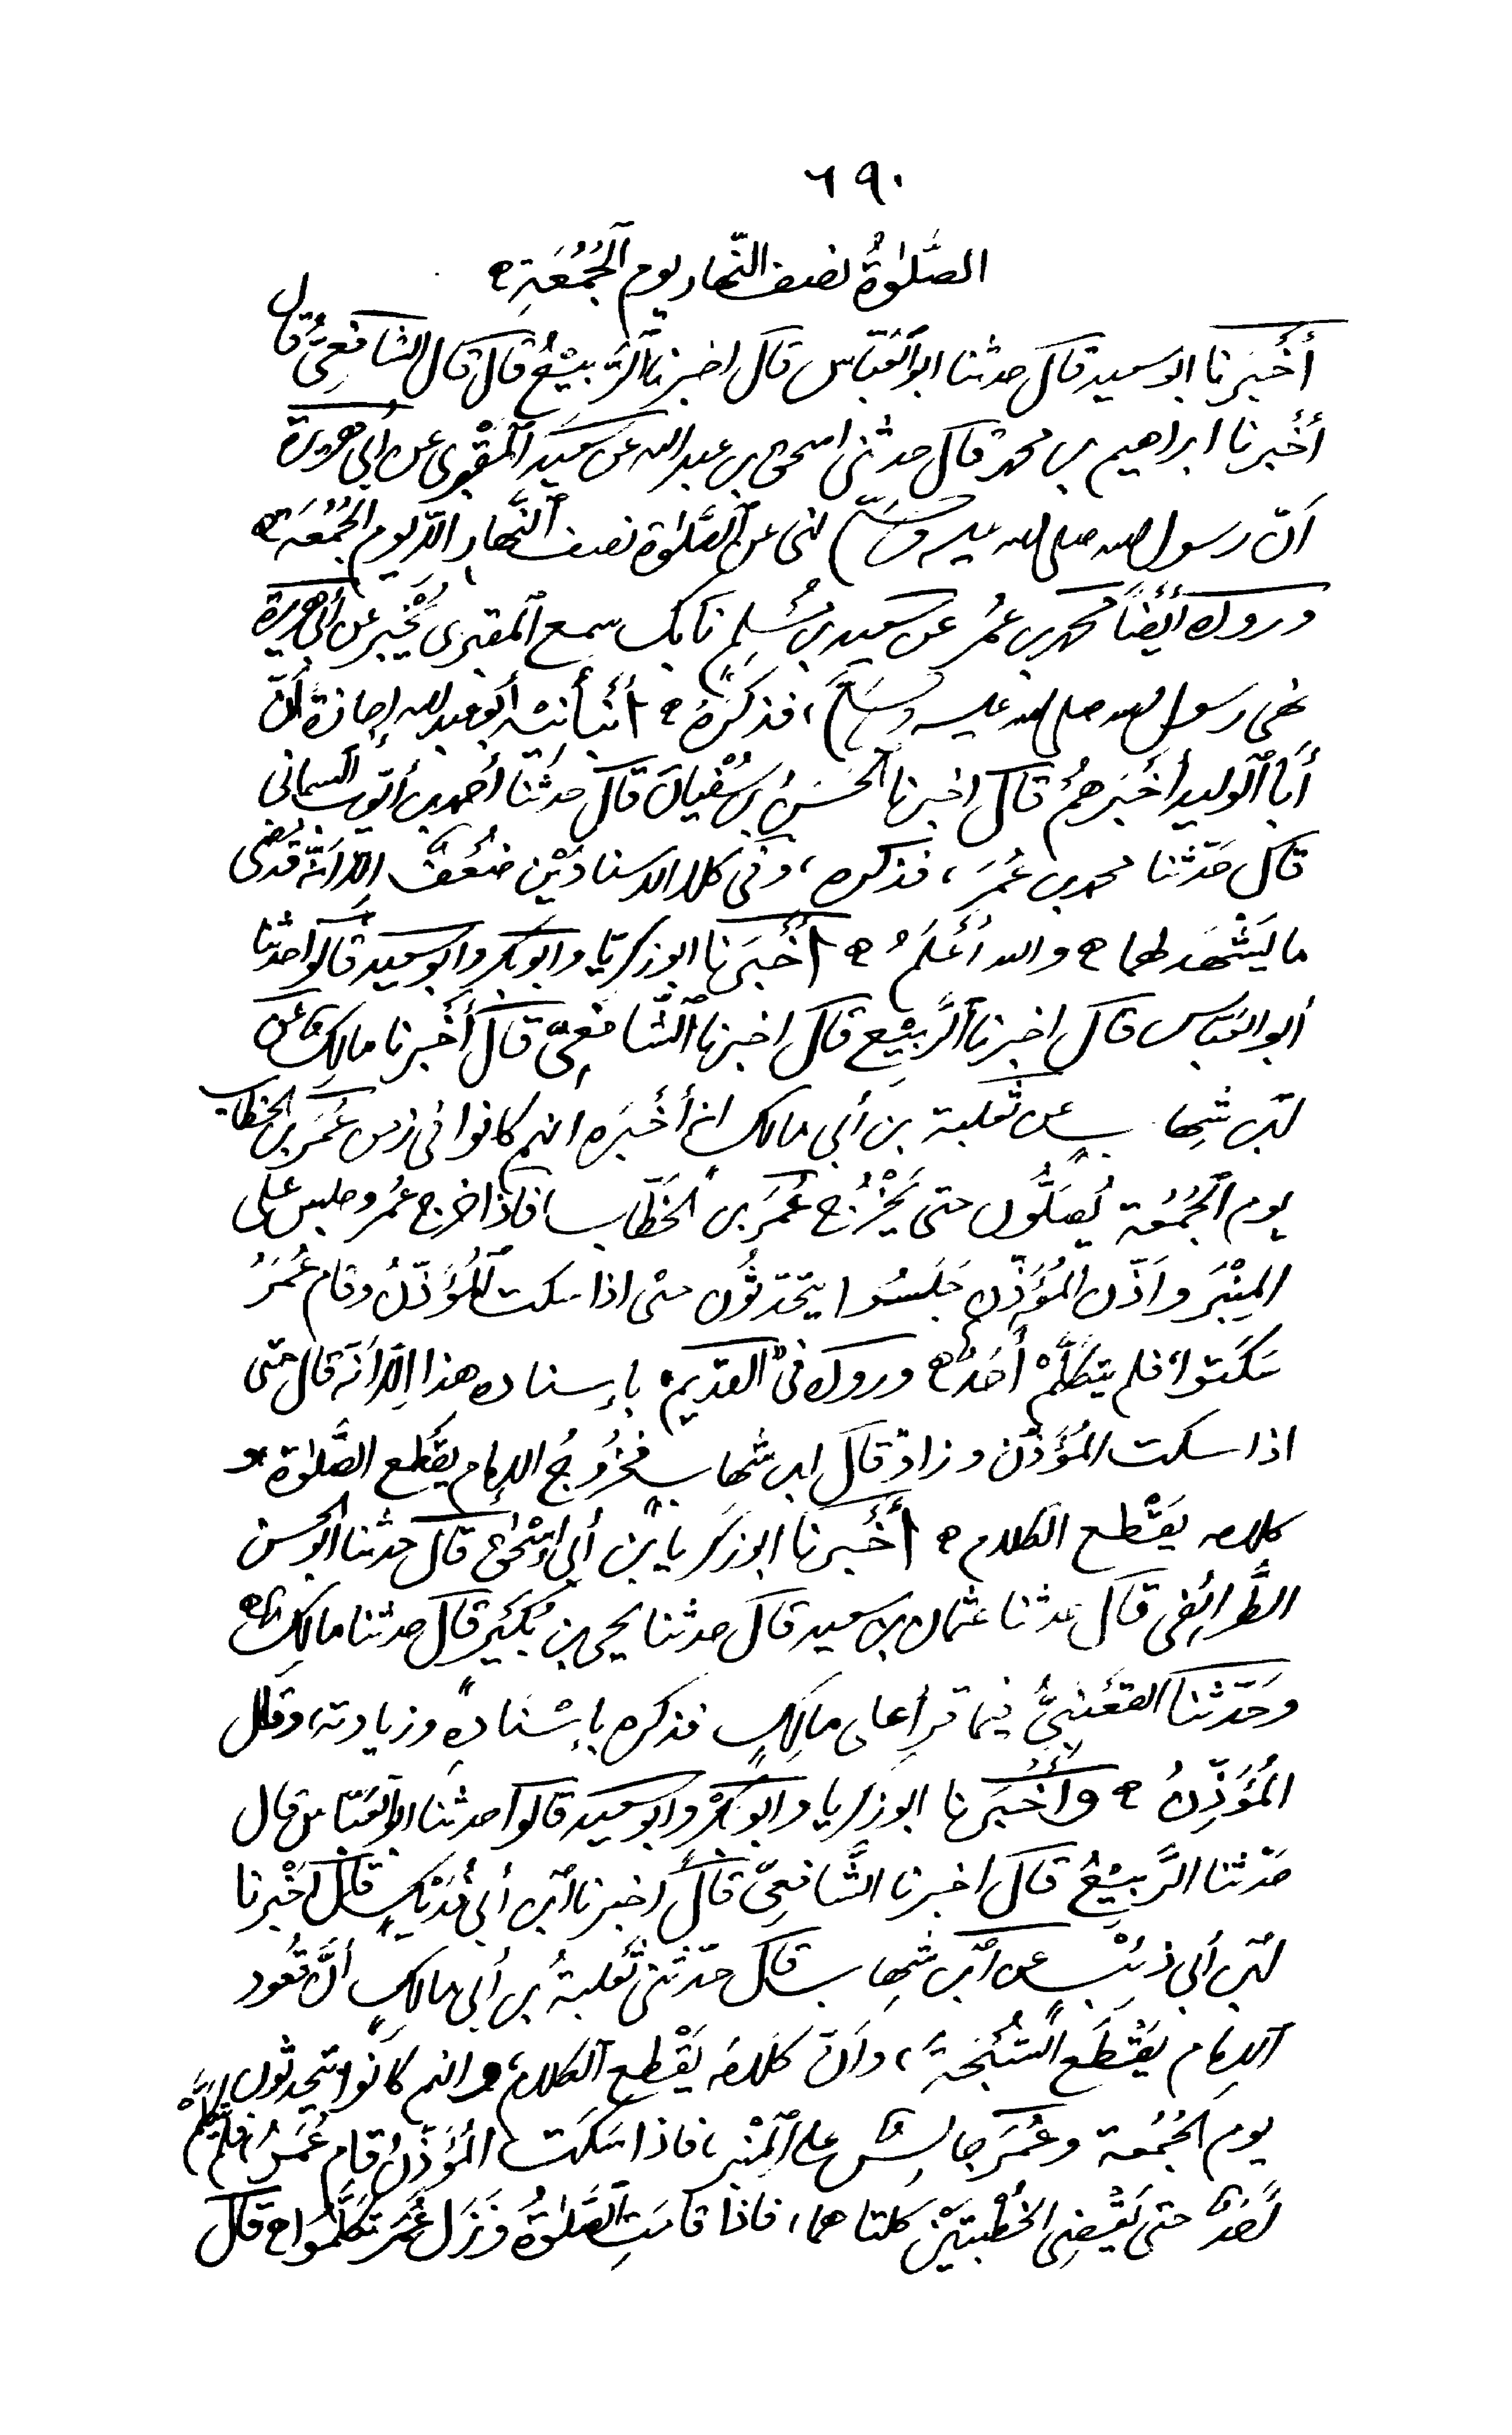 ٦٩٠
الصَّلوٰةُ نصف النّهار يوم الجُمُعَةِ ه
أخْبَرنا ابو سعيد قال حدثنا ابو العَبّاس قال اخبرنا الرَّبيْعُ قال قال الشافِعِىُّ قال
أخْبرنا ابراهيم بن محمد قال حدثنى اسحق بن عبد الله عن سَعِيد المَقْبُرى عن أبى هريرة
اَنّ رسول الله صلى الله عليه وسَلّم نهى عن الصَّلوٰة نصف النَّهارِ الا يوم الجُمُعَة ه
وروى أيْضًا محمد بن عُمَر عن سعيد بن مُسْلِم بن بانك سمع المقبرى يُخْبِر عن أبى هريرة
نهى رسول الله صلى الله عليه وسَلَّم، فذكَرَهُ ه أنْبأنيْه أبو عبد الله إجازةً أنّ
أبا الوليد أخْبَرهُمْ قال اخبرنا الحَسَنُ بن سُفْيان قال حدثنا أحمد بن أيّوب السمانى
قال حَدّثنا محمد بن عُمَرَ، فذكره، وفى كلا الاسنادَيْن ضَعْفٌ الا اَنّه قد مُضى
ما يَشْهَد لهما ه والله أعْلَمُ ه أخْبَرنا ابو زكريّا وابو بكر وابو سعيد قالوا حدثنا
أبو العبّاس قال اخبرنا الرَّبِيْع قال اخبرنا الشَّافِعِىّ قال أخْبرنا مالِكٌ عن
ابْن شِهابٍ عن ثعلبة بن أبى مالك انه أخْبَره انهم كانوا فى زمن عُمَر بن الخطاب
يوم الجُمُعة يُصَلُّون حتى يَخْرُج عُمَر بن الخَطّاب فاذا خرج عمُر وجلس على
المِنْبَر واَذّن المُؤَذّن جَلَسُوا يتحَدّثُون حتى اذا سكت المُؤَذّنُ وقام عُمَرُ
سَكَتوا، فلم يتكَلّمْ أحَدٌ ه وروى فى القديم، بإسناده هذا اِلّا اَنّه قال حتى
اذا سكت المُؤَذّن وزاد قال ابن شهاب فخُرُوجُ الامام يقطع الصَّلوٰة و
كلامه يَقْطع الكلام ه أخْبَرنا ابو زكريا بن أبى اِسْحٰق قال حدثنا ابو الحسن
الطَّرائِفى قال حدثنا عثمان بن سعيد قال حدثنا يحيى بن بُكَيْر قال حدثنا مالِكٌ ه
وحَدّثنا القَعْنَبِىُّ فيما قرأ على مالِكٍ فذكره بإسْنادِه وزيادته، وقال
المُؤَذّنُ ه وأخْبَرنا ابو زكريا وابو بَكْر وابو سعيد قالوا حدثنا ابو العَبّاس قال
حَدّثنا الرَّبِيْعُ قال اخبرنا الشَّافعىّ قال اخبرنا ابْن أبى فُدَيْكٍ قال اخْبرنا
ابْن أبى ذِئْبٍ عن ابْن شِهابٍ قال حَدّثنى ثَعْلبةُ بن أبى مالكٍ أنَّ قُعُود
الامام يَقْطَع السُّبْحَةَ، واَنّ كَلامَه يَقْطع الكلام، وانهم كانوا يتحدثون
يوم الجُمُعة وعُمَر جالِسٌ على المِنْبَر، فاذا سَكَت المُؤَذّنُ قام عُمَرُ، فلم يَتَكَلَّمْ
أحَدٌ حتى يَقْضِى الخُطْبتَيْن كلتاهما، فاذا قامَتِ الصَّلوٰةُ ونَزَل عُمَر تكَلَّمُوا ه قال